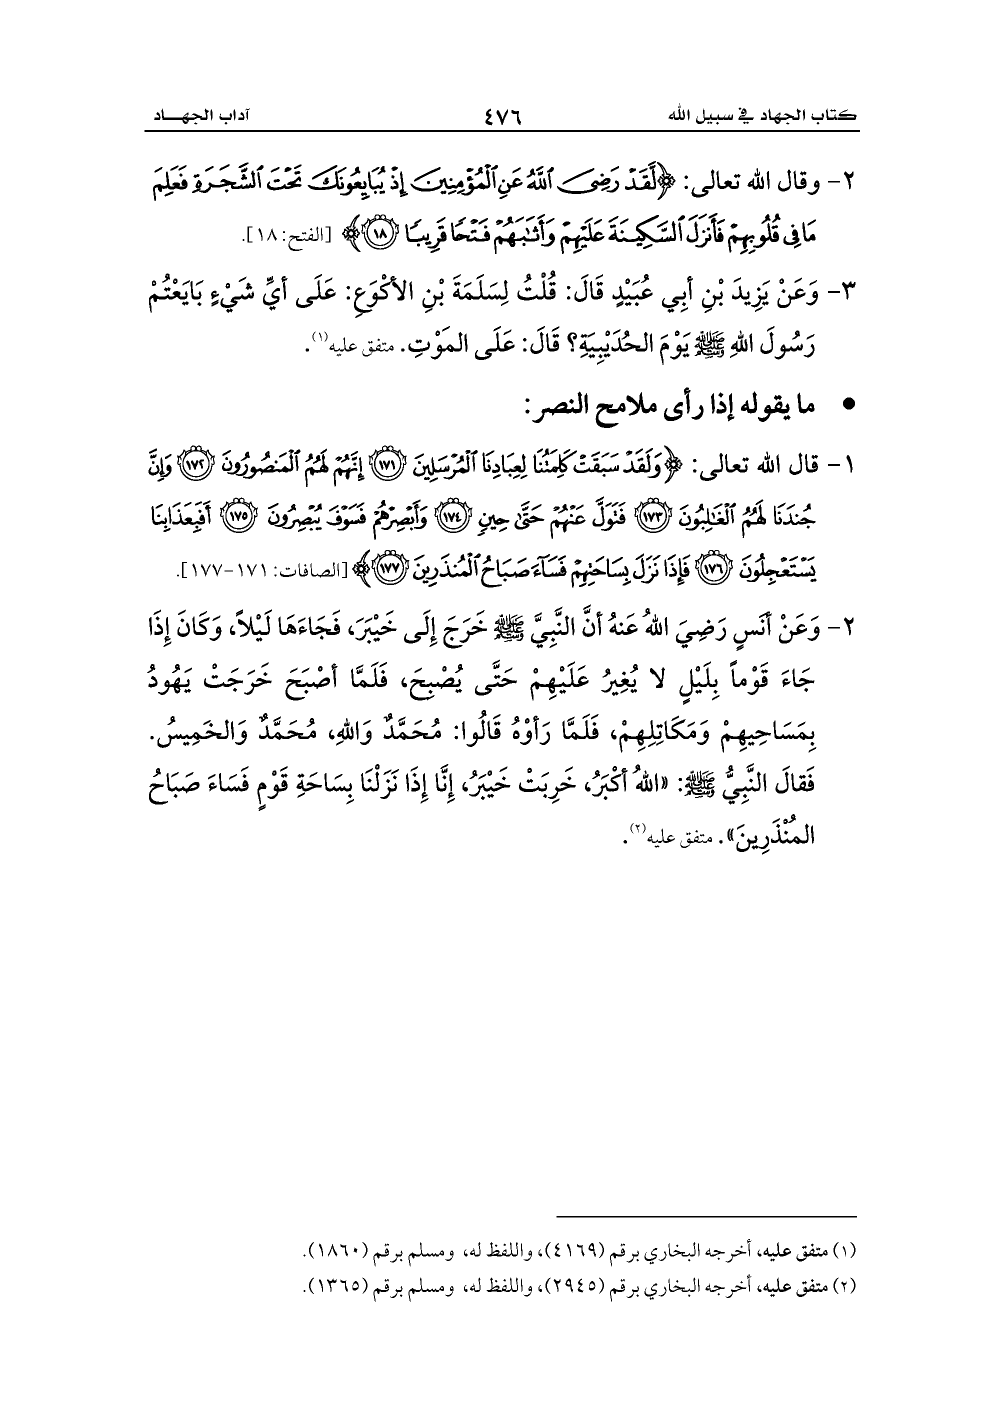 كتاب الجهاد في سبيل الله ٤٧٦ آداب الجهـــاد
٢- وقال الله تعالى: ﴿لَّقَدْ رَضِيَ اللَّهُ عَنِ الْمُؤْمِنِينَ إِذْ يُبَايِعُونَكَ تَحْتَ الشَّجَرَةِ فَعَلِمَ
مَا فِي قُلُوبِهِمْ فَأَنزَلَ السَّكِينَةَ عَلَيْهِمْ وَأَثَابَهُمْ فَتْحًا قَرِيبًا ١٨﴾ [الفتح: ١٨].
٣- وَعَنْ يَزِيدَ بْنِ أبِي عُبَيْدٍ قَالَ: قُلْتُ لِسَلَمَةَ بْنِ الأكْوَعِ: عَلَى أيِّ شَيْءٍ بَايَعْتُمْ
رَسُولَ اللهِ ﷺ يَوْمَ الحُدَيْبِيَةِ؟ قَالَ: عَلَى المَوْتِ. متفق عليه(١).
● ما يقوله إذا رأى ملامح النصر:
١- قال الله تعالى: ﴿وَلَقَدْ سَبَقَتْ كَلِمَتُنَا لِعِبَادِنَا الْمُرْسَلِينَ ١٧١ إِنَّهُمْ لَهُمُ الْمَنصُورُونَ ١٧٢ وَإِنَّ
جُندَنَا لَهُمُ الْغَالِبُونَ ١٧٣ فَتَوَلَّ عَنْهُمْ حَتَّى حِينٍ ١٧٤ وَأَبْصِرْهُمْ فَسَوْفَ يُبْصِرُونَ ١٧٥ أَفَبِعَذَابِنَا
يَسْتَعْجِلُونَ ١٧٦ فَإِذَا نَزَلَ بِسَاحَتِهِمْ فَسَاءَ صَبَاحُ الْمُنذَرِينَ ١٧٧﴾ [الصافات: ١٧١-١٧٧].
٢- وَعَنْ أنَسٍ رَضِيَ اللهُ عَنهُ أنَّ النَّبِيَّ ﷺ خَرَجَ إلَى خَيْبَرَ، فَجَاءَهَا لَيْلاً، وَكَانَ إذَا
جَاءَ قَوْماً بِلَيْلٍ لا يُغِيرُ عَلَيْهِمْ حَتَّى يُصْبِحَ، فَلَمَّا أصْبَحَ خَرَجَتْ يَهُودُ
بِمَسَاحِيهِمْ وَمَكَاتِلِهِمْ، فَلَمَّا رَأوْهُ قَالُوا: مُحَمَّدٌ وَاللهِ، مُحَمَّدٌ وَالخَمِيسُ.
فَقالَ النَّبِيُّ ﷺ: «اللهُ أكْبَرُ، خَرِبَتْ خَيْبَرُ، إنَّا إذَا نَزَلْنَا بِسَاحَةِ قَوْمٍ فَسَاءَ صَبَاحُ
المُنْذَرِينَ». متفق عليه(٢).
(١) متفق عليه، أخرجه البخاري برقم (٤١٦٩)، واللفظ له، ومسلم برقم (١٨٦٠).
(٢) متفق عليه، أخرجه البخاري برقم (٢٩٤٥)، واللفظ له، ومسلم برقم (١٣٦٥).